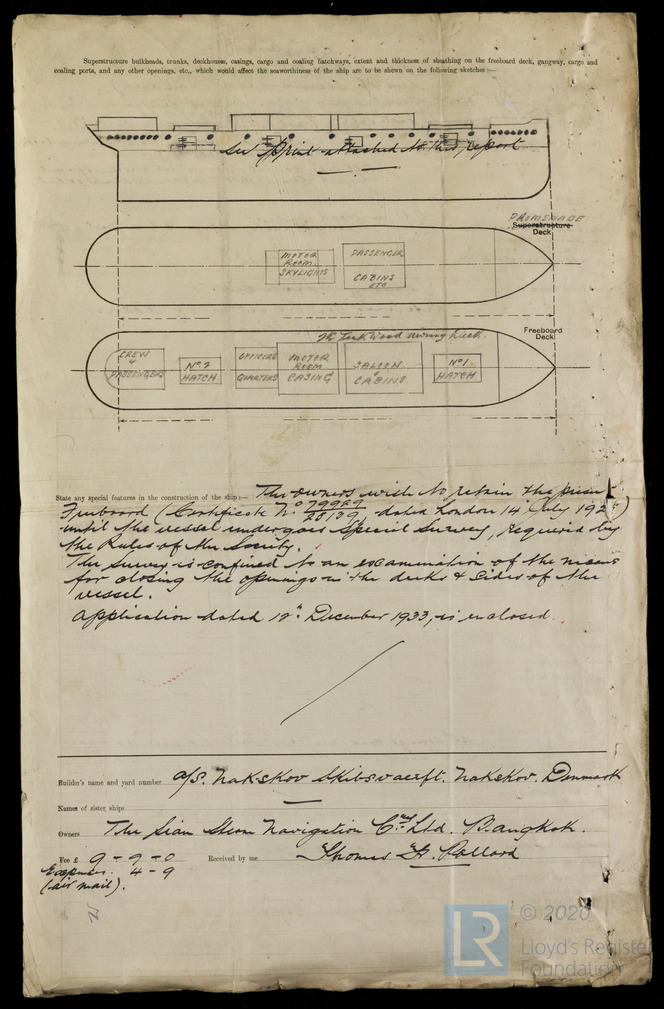 Superstructure bulkheads, trunks, deckhouses, casings, cargo and coaling hatchways, extent and thickness of sheathing on the freeboard deck, gangway, cargo and
coaling ports, and any other openings, etc., which would affect the seaworthiness of the ship are to be shewn on the following sketches :—
See print attached to this report
PROMENADE
Superstructure
Deck
MOTOR
ROOM
SKYLIGHTS
PASSENGER
CABINS
ETC
Freeboard
Deck
Teak Wood awning deck.
CREW
&
PASSENGERS
No 2
HATCH
OFFICERS
QUARTERS
MOTOR
ROOM
CASING
SALOON
&
CABINS
No 1
HATCH
State any special features in the construction of the ship:— The owners wish to retain the
Freeboard (Certificate No 79989/28139, dated London 14 July
until the vessel undergoes Special Survey, required by
the Rules of the Society.
The Survey is confined to an examination of the means
for closing the openings in the decks & sides of the
vessel.
Application dated 12th December 1933, is enclosed.
Builder's name and yard number A/S. Nakskov Skibsvaerft. Nakskov. Denmark
Names of sister ships —
Owners The Siam Steam Navigation Coy Ltd. Bangkok.
Fee £ 9 - 9 - 0 Received by me Thomas H. Pollard
Expenses. 4 - 9
(air mail).
LR © 2020
Lloyd's Register
Foundation